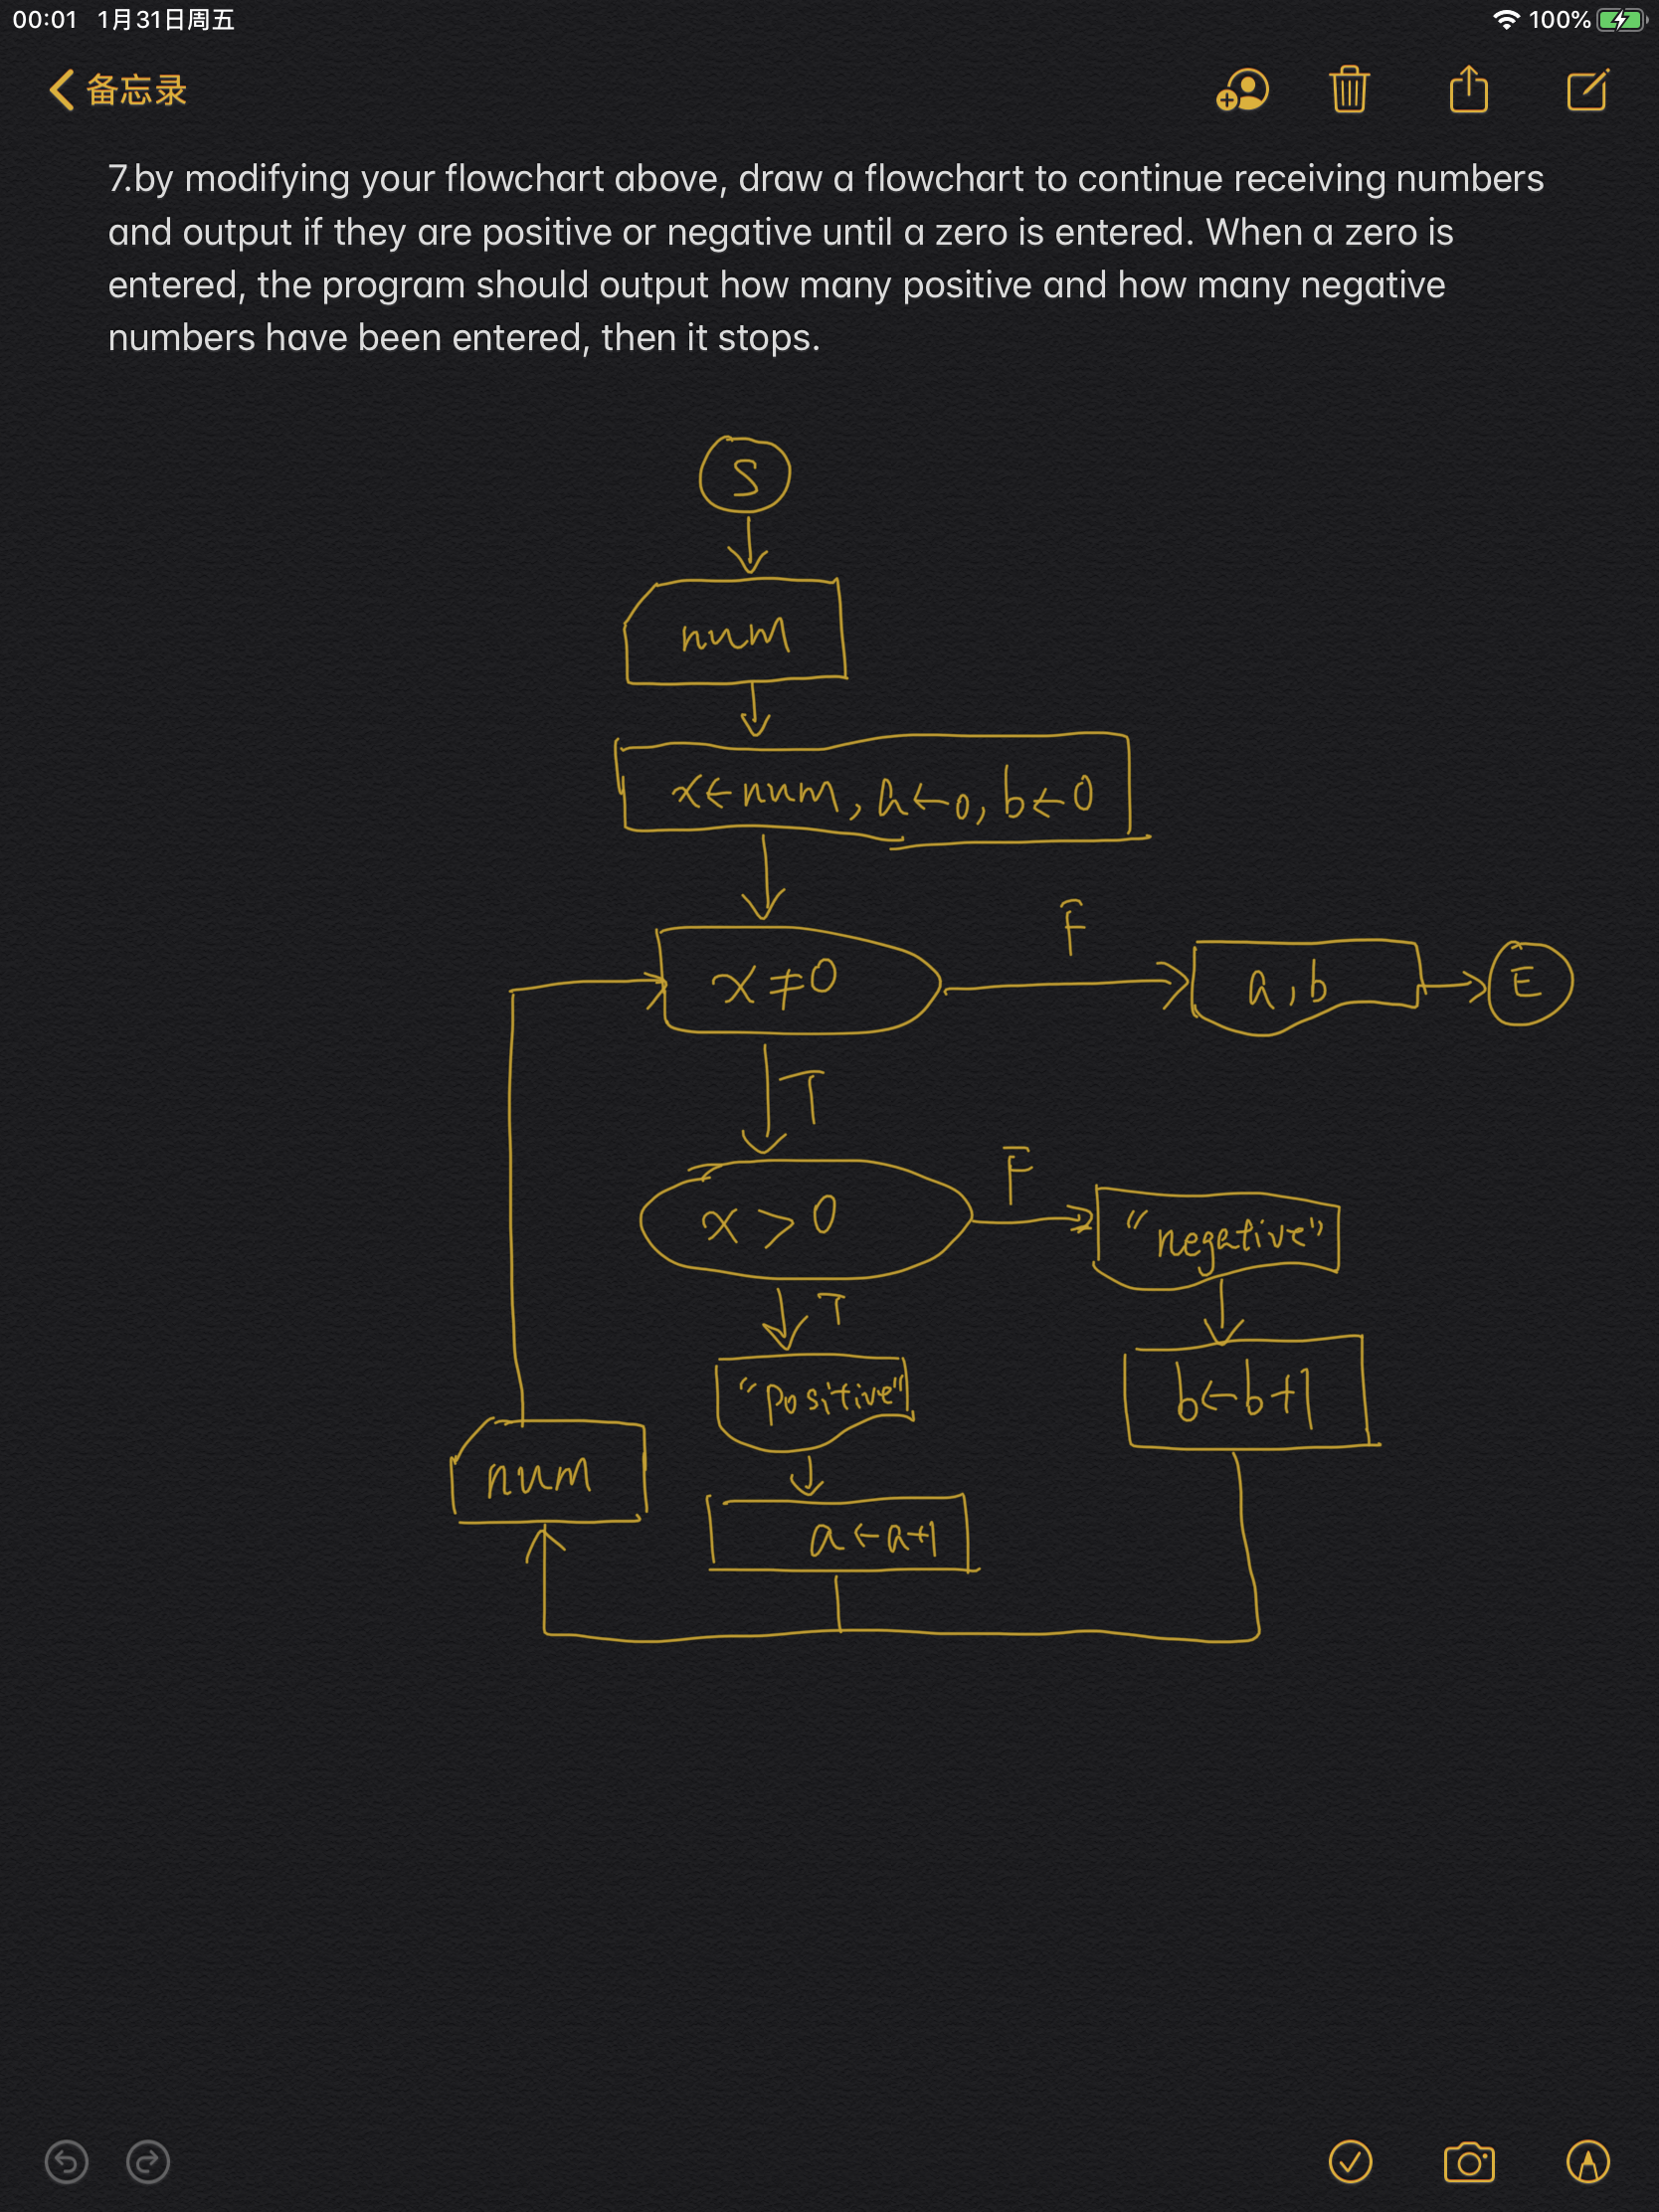 00:01 1月31日周五 100%
备忘录
7.by modifying your flowchart above, draw a flowchart to continue receiving numbers
and output if they are positive or negative until a zero is entered. When a zero is
entered, the program should output how many positive and how many negative
numbers have been entered, then it stops.
S
num
x←num, a←0, b←0
F
x≠0
a,b
E
T
F
x>0
"negative"
T
"positive"
b←b+1
num
a←a+1